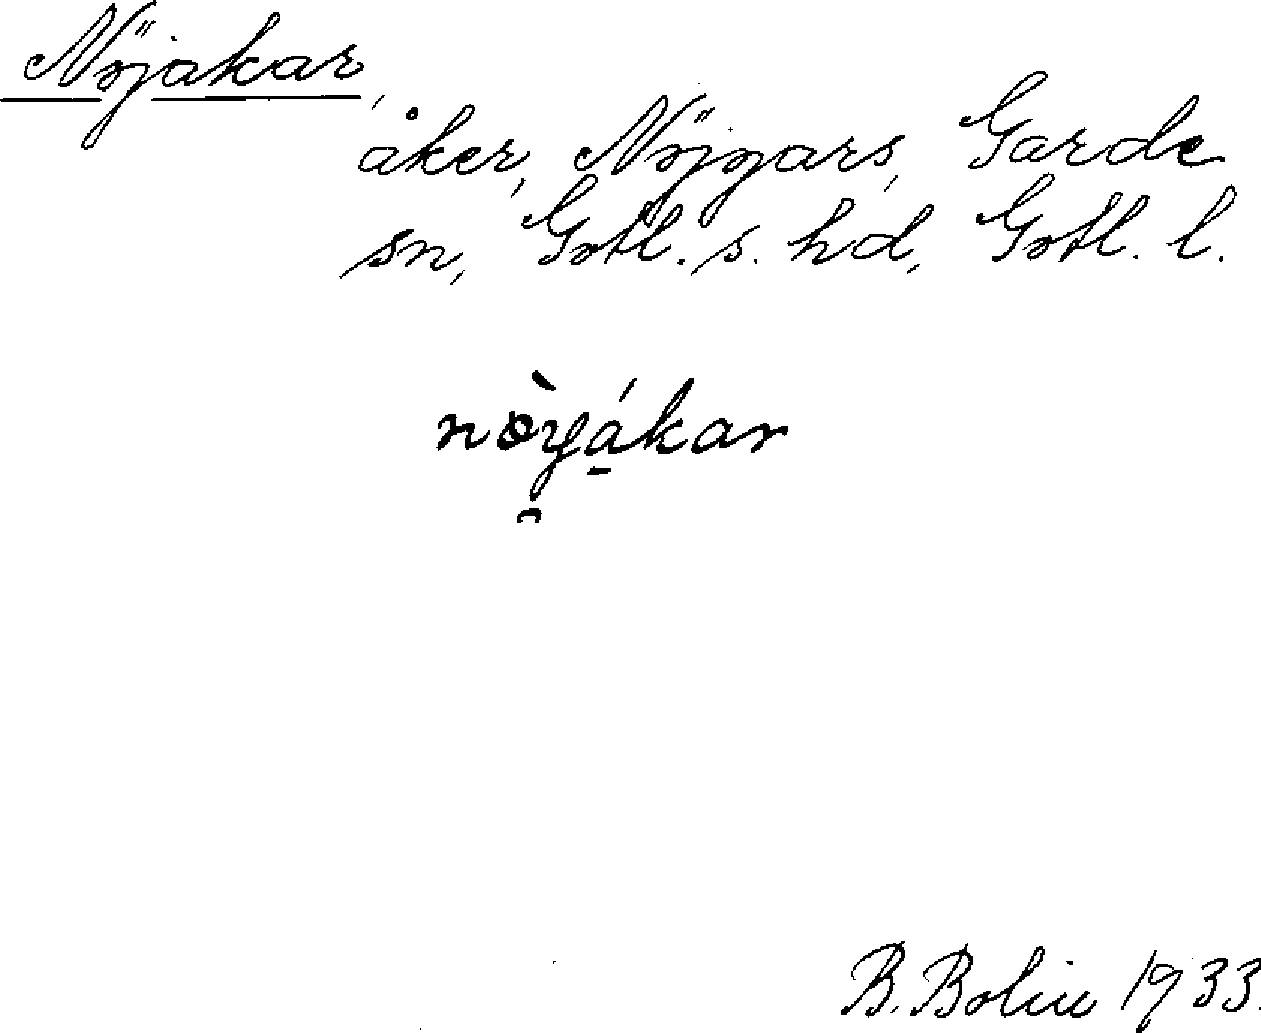 Nöjakar,
åker, Nöjgars, Garde
sn, Gotl. s. hd, Gotl. l.
nòyákar
B. Bolin 1933.